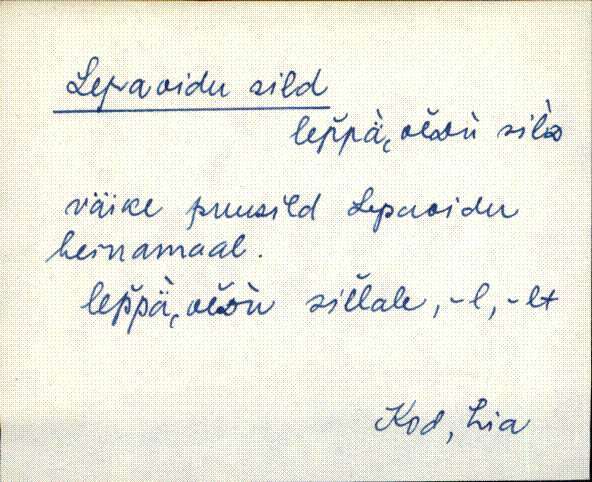 Lepaoidu sild
leppä, silᴅ
väike puusild Lepaoidu
heinamaal.
leppä, sillale, -l, -lt
Kod, Lia